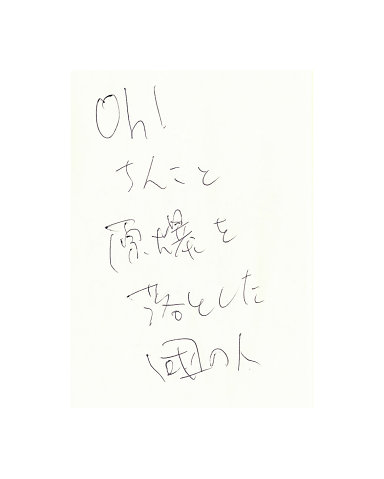 Oh!
ちんこと
原爆を
落とした
国の人